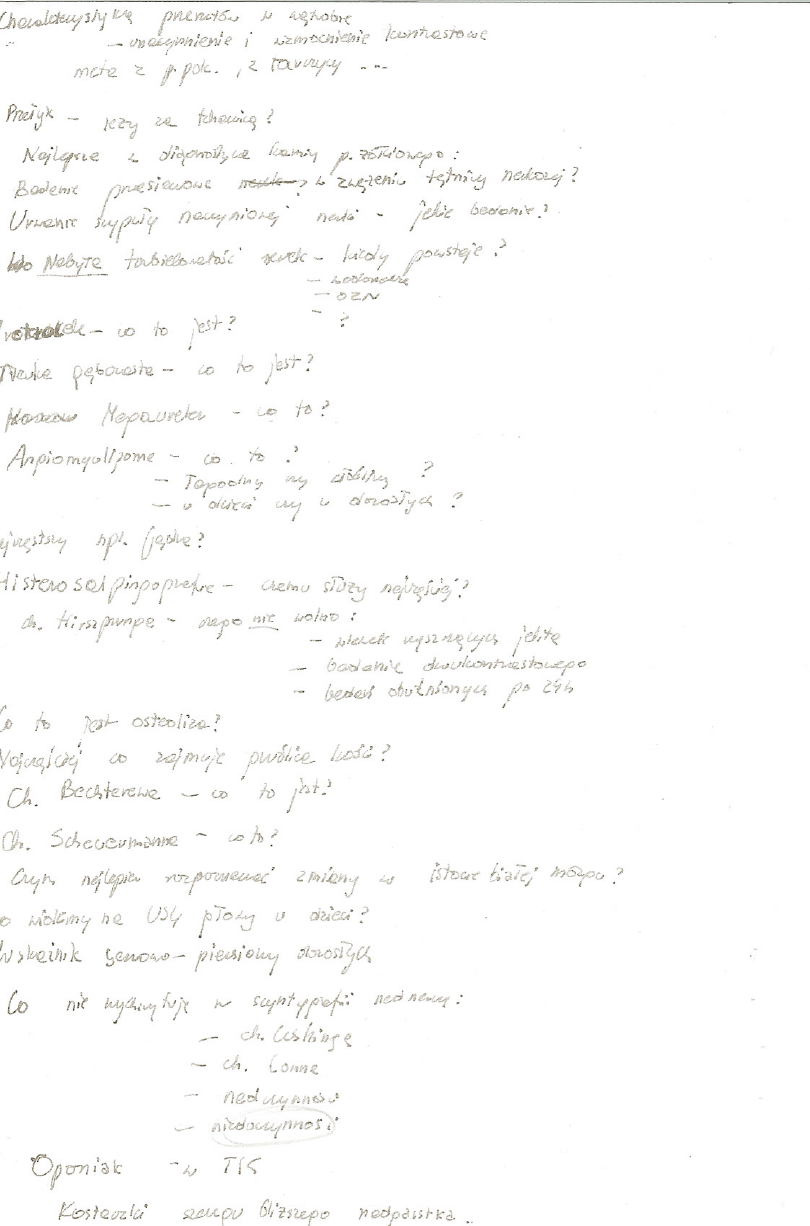 Charakterystyka przerzutów w wątrobie
- unaczynnienie i wzmocnienie kontrastowe
meta z p. pok., z tarczycy ...
Przełyk - leży za tchawicą?
Najlepsze w diagnostyce kamicy p. żółciowego:
Badanie przesiewowe w zwężeniu tętnicy nerkowej?
Urwanie szypuły naczyniowej nerki - jakie badanie?
Nabyta torbielowatość nerek - kiedy powstaje?
- wodonercze
- OZN
- ?
- co to jest?
Nerka gąbczasta - co to jest?
Megaureter - co to?
Angiomyolipoma - co to?
- łagodny czy złośliwy ?
- u dzieci czy u dorosłych ?
npl. jądra?
Histerosalpingografia - czemu służy najczęściej?
ch. Hirszprunga - czego nie wolno:
- wlewek czyszczących jelita
- badania dwukontrastowego
- badań opóźnionych po 24h
Co to jest osteoliza?
Najczęściej co zajmuje gruźlica kości?
Ch. Bechterewa - co to jest?
Ch. Scheuermanna - co to?
Czym najlepiej rozpoznawać zmiany w istocie białej mózgu?
co widzimy na USG głowy u dzieci?
Wskaźnik sercowo-piersiowy dorosłych
Co nie wychwytuje w scyntygrafii nadnerczy:
- ch. Cushinga
- ch. Conna
- nadczynność
- niedoczynność
Oponiak - w TK
Kosteczki szeregu bliższego nadgarstka..